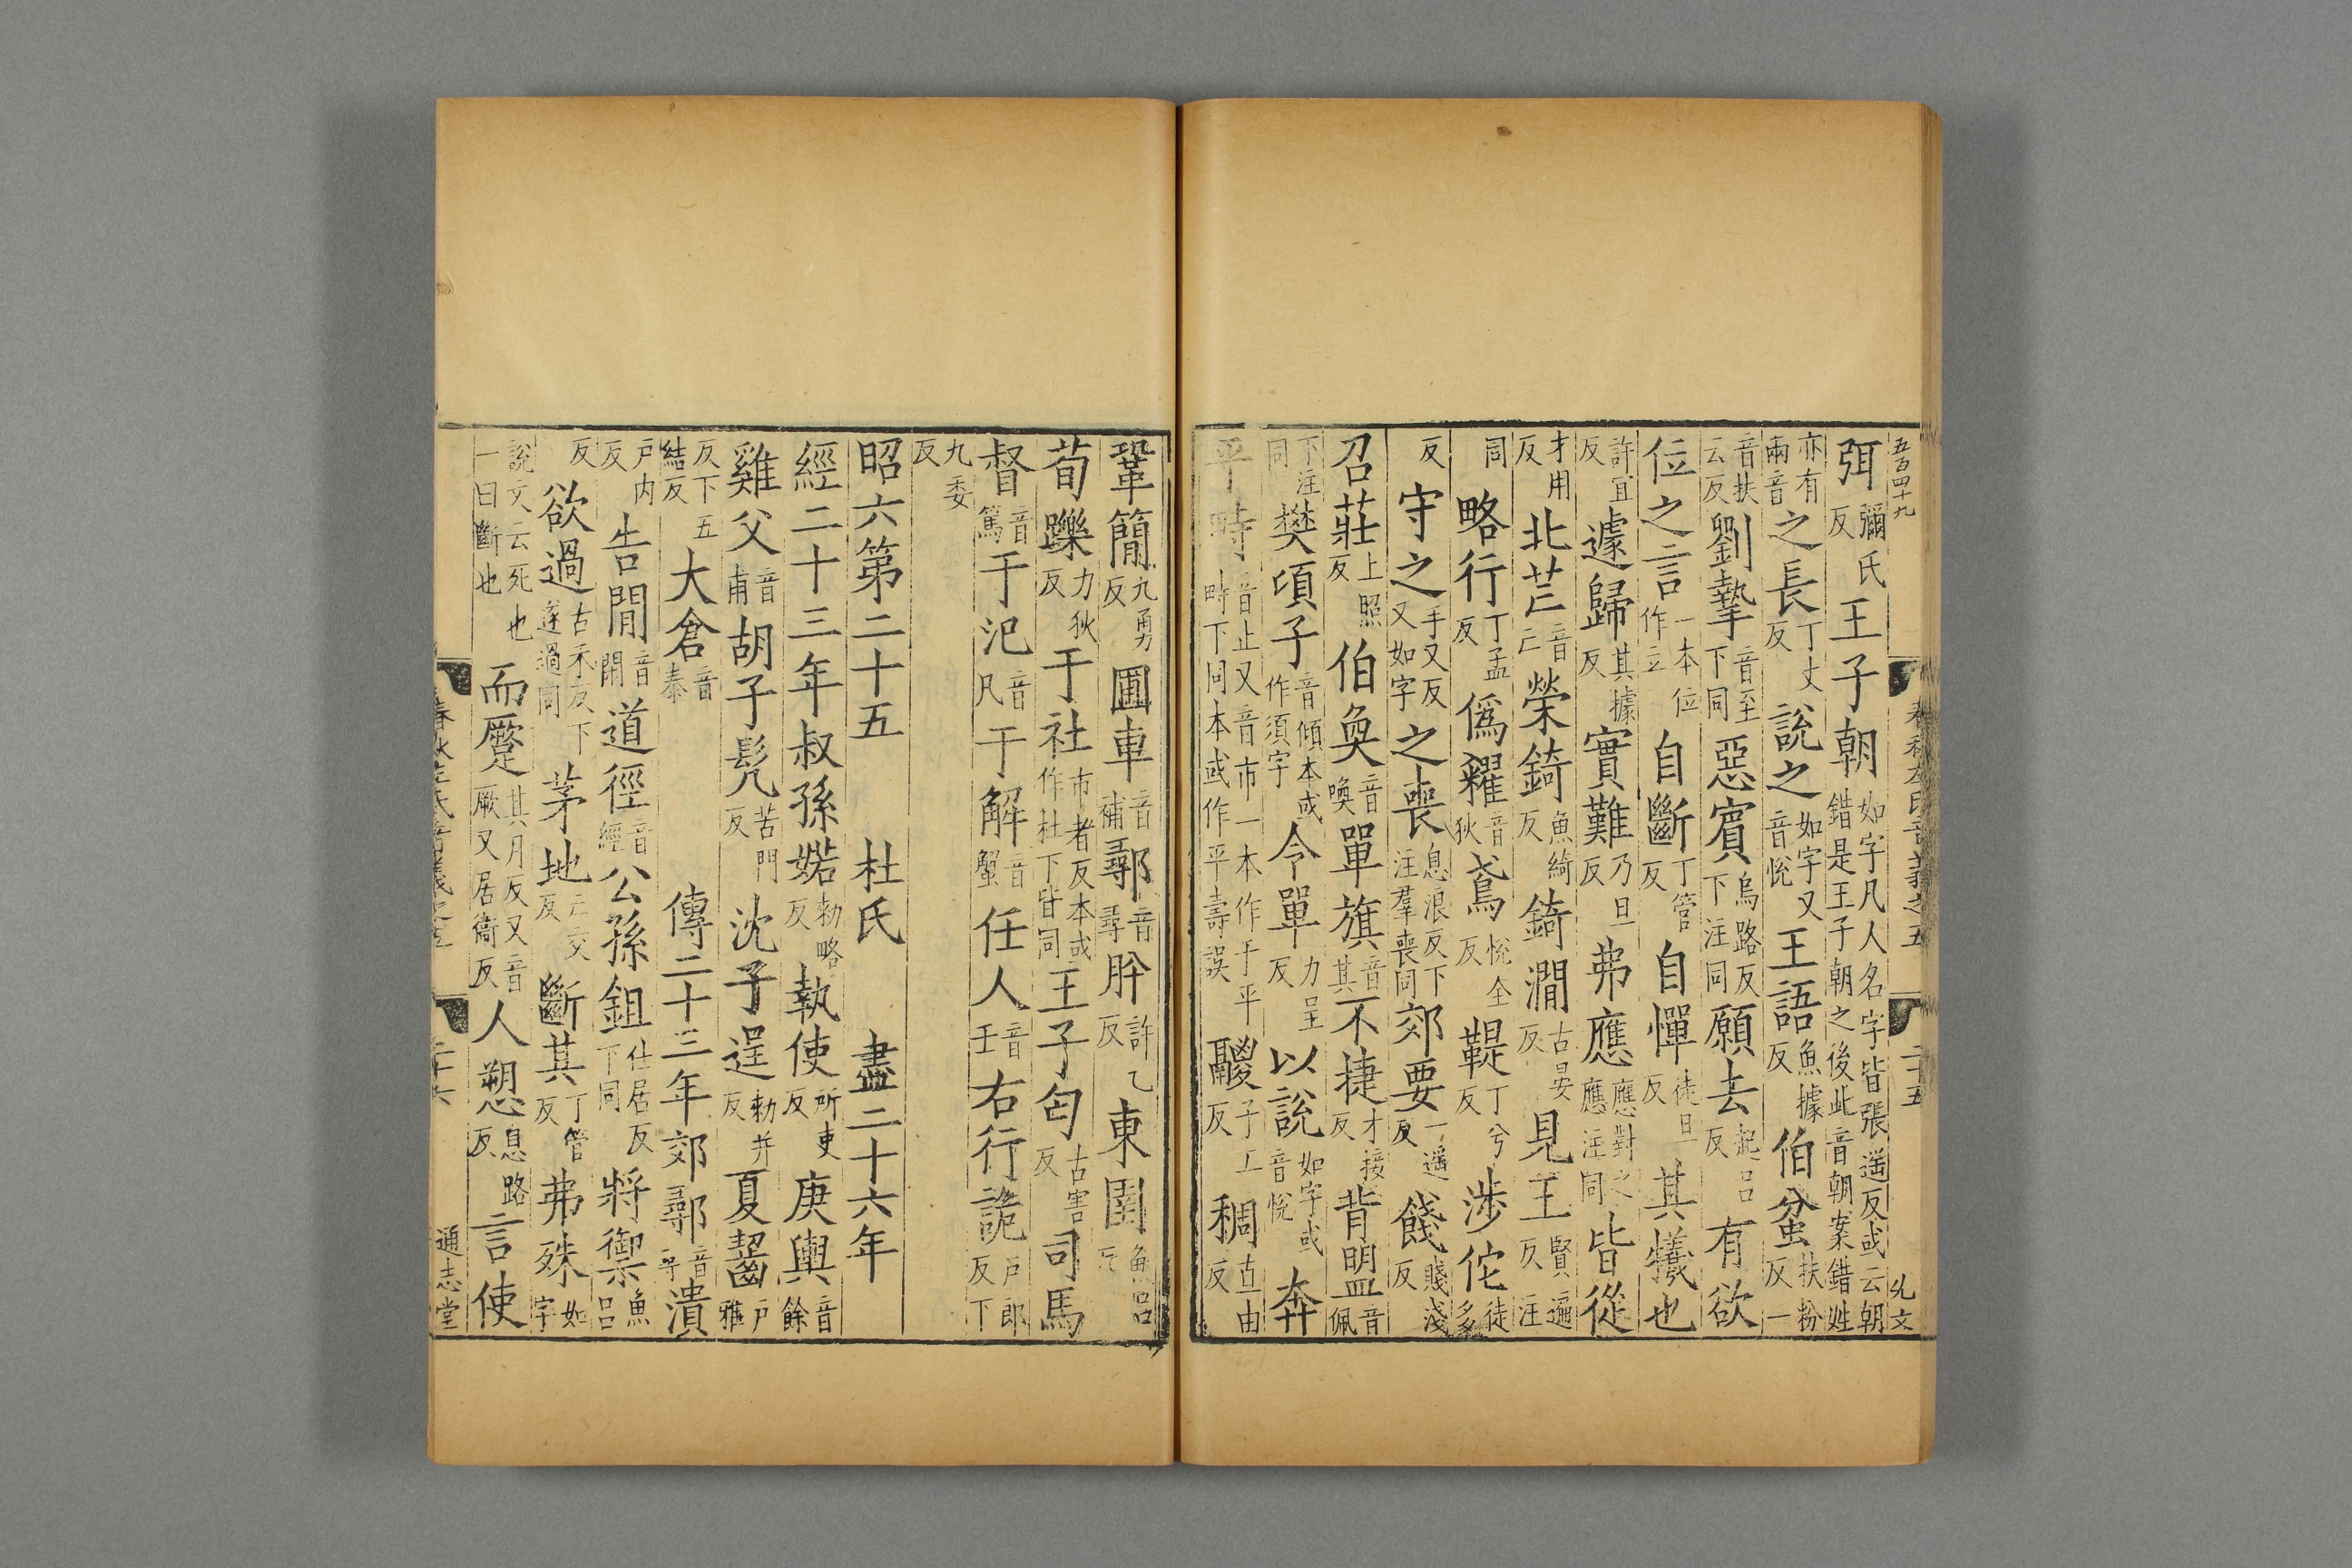 五百四十九 春秋左氏音義之五 二十五 允文
弭彌氏反王子朝如字凡人名字皆張遥反或云朝錯是王子朝之後此音朝案錯姓
亦有兩音之長丁丈反說之如字又音悅王語魚據反伯蚠扶粉反一
音扶云反劉摯音至下同惡賔烏路反下注同願去起呂反有欲
位之言一本位作立自斷丁管反自憚徒旦反其犧也
許宜反遽歸其據反實難乃旦反弗應應對之應注同皆從
才用反北芒音亡榮錡魚綺反錡澗古晏反見王賢遍反注
同略行丁孟反僞糴音狄鳶悅全反鞮丁兮反涉佗徒多
反守之手又反又如字之喪息浪反下注羣喪同郊要一遥反餞賤淺反
召莊上照反伯奐音喚單旗音其不捷才接反背盟音佩
下注同樊頃子音傾本或作須字令單力呈反以說如字或音悅奔
平畤音止又音市一本作于平畤下同本或作平壽誤鬷子工反稠直由反
鞏簡九勇反圃車音補鄩音尋肸許乙反東圉魚呂反
荀躒力狄反于社市者反本或作杜下皆同王子匄古害反司馬
督音篤于汜音凡于解音蟹任人音壬右行詭戶郎反下
九委反
昭六第二十五 杜氏 盡二十六年
經二十三年叔孫婼勑略反執使所吏反庚輿音餘
雞父音甫胡子髠苦門反沈子逞勑井反夏齧戶雅
反下五結反大倉音泰 傳二十三年郊鄩音尋潰
戶內反告閒音閑道徑音經公孫鉏仕居反下同將禦魚呂
反欲過古禾反下遂過同茅地亡交反斷其丁管反弗殊如字
說文云死也一曰斷也而蹷其月反又音厥又居衞反人愬息路反言使
春秋左氏音義之五 二十六 通志堂